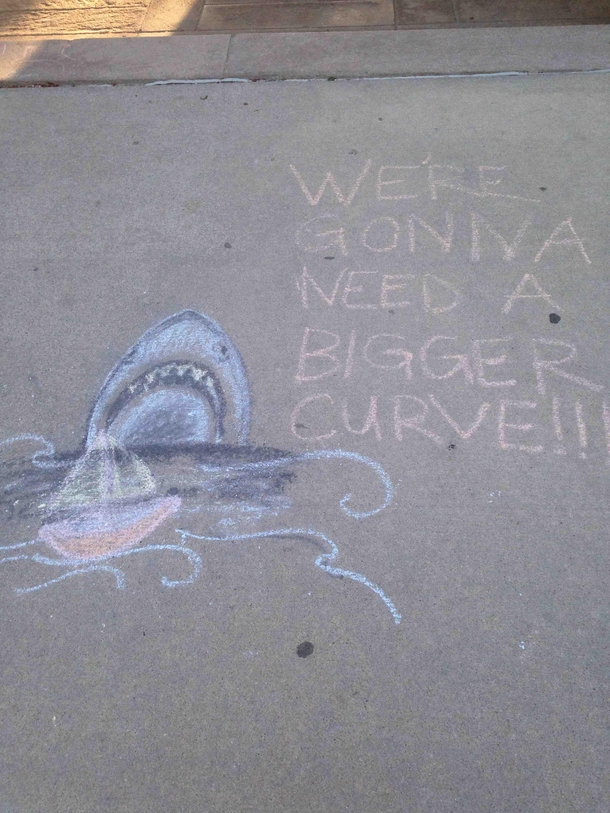 WE'RE
GONNA
NEED A
BIGGER
CURVE!!!